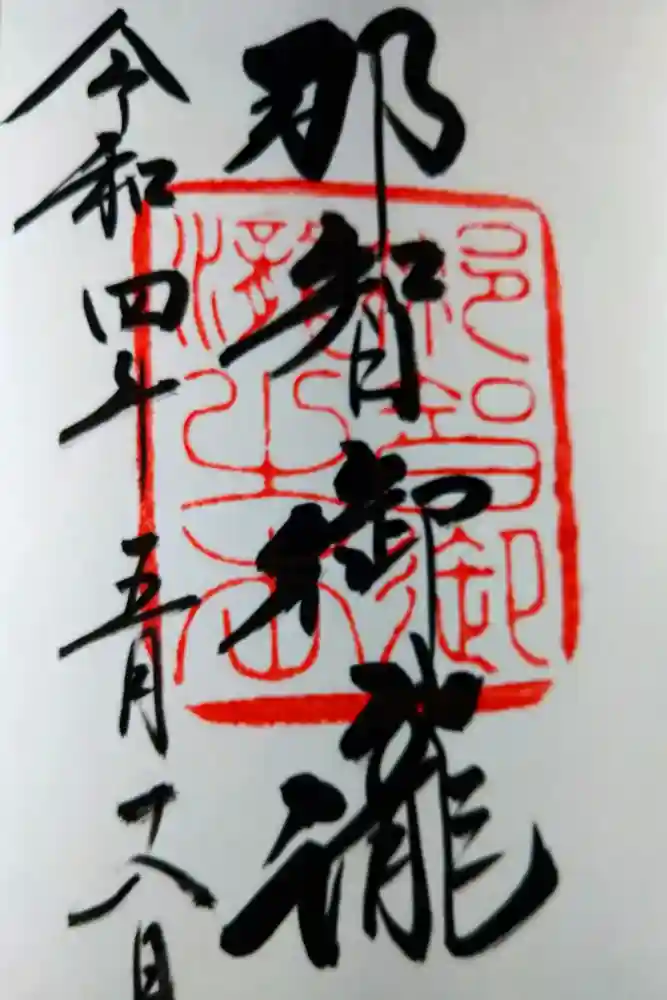 那智御瀧
令和四年 五月 十八日